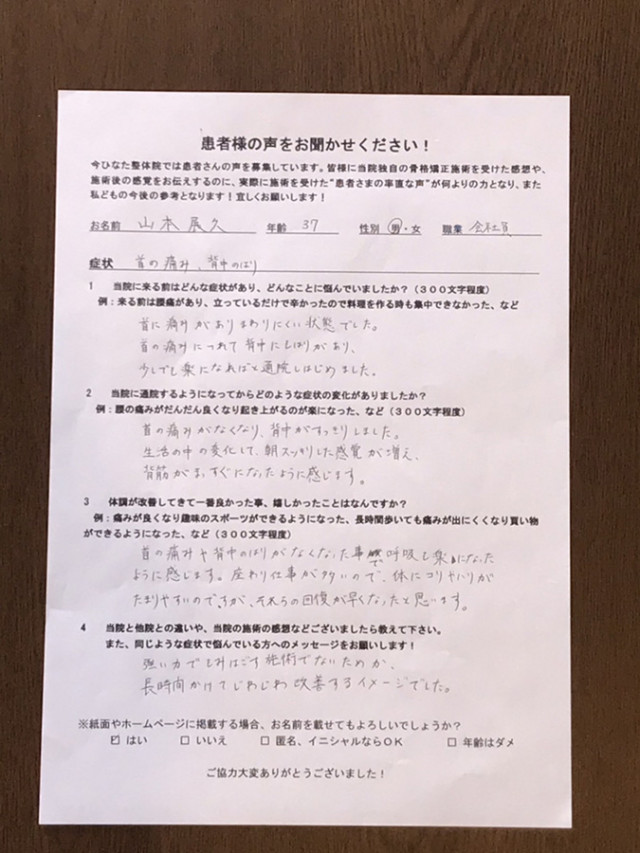 患者様の声をお聞かせください！
今ひなた整体院では患者さんの声を募集しています。皆様に当院独自の骨格矯正施術を受けた感想や、
施術後の感覚をお伝えするのに、実際に施術を受けた“患者さまの率直な声”が何よりの力となり、また
私どもの今後の参考となります！宜しくお願いします！
お名前 山本展久 年齢 37 性別 男・女 職業 会社員
症状 首の痛み、背中のはり
1 当院に来る前はどんな症状があり、どんなことに悩んでいましたか？（３００文字程度）
例：来る前は腰痛があり、立っているだけで辛かったので料理を作る時も集中できなかった、など
首に痛みがありまわりにくい状態でした。
首の痛みにつれて背中にしばりがあり、
少しでも楽になればと通院しはじめました。
2 当院に通院するようになってからどのような症状の変化がありましたか？
例：腰の痛みがだんだん良くなり起き上がるのが楽になった、など（３００文字程度）
首の痛みがなくなり、背中がすっきりしました。
生活の中の変化して、朝スッキリした感覚が増え、
背筋がまっすぐになったように感じます。
3 体調が改善してきて一番良かった事、嬉しかったことはなんですか？
例：痛みが良くなり趣味のスポーツができるようになった、長時間歩いても痛みが出にくくなり買い物
ができるようになった、など（３００文字程度）
首の痛みや背中のはりがなくなった事 呼吸も楽になった
ように感じます。座わり仕事が多いので、体にコリやハリが
たまりやすいのですが、それらの回復が早くなったと思います。
4 当院と他院との違いや、当院の施術の感想などございましたら教えて下さい。
また、同じような症状で悩んでいる方へのメッセージをお願いします！
強い力でもみほごす施術でないためか、
長時間かけてじわじわ改善するイメージでした。
※紙面やホームページに掲載する場合、お名前を載せてもよろしいでしょうか？
☑ はい □ いいえ □ 匿名、イニシャルならＯＫ □ 年齢はダメ
ご協力大変ありがとうございました！